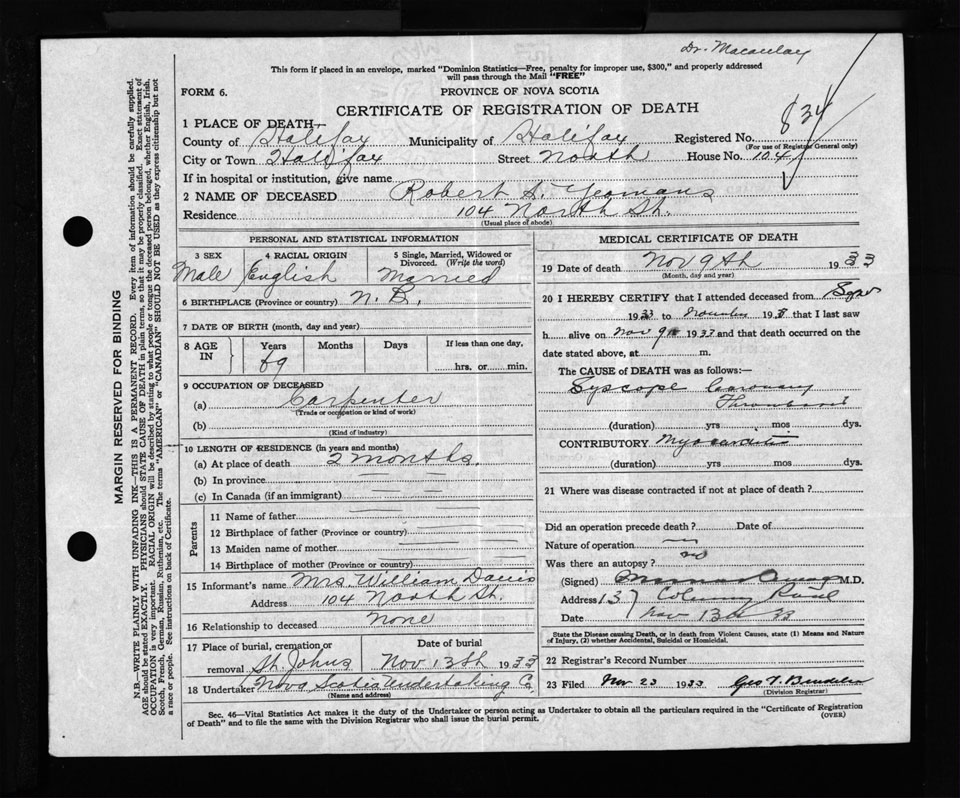 Dr. Macaulay
This form if placed in an envelope, marked "Dominion Statistics—Free, penalty for improper use, $300," and properly addressed
will pass through the Mail "FREE"
FORM 6.
PROVINCE OF NOVA SCOTIA
CERTIFICATE OF REGISTRATION OF DEATH
834
1 PLACE OF DEATH—
County of Halifax Municipality of Halifax Registered No.
(For use of Registrar General only)
City or Town Halifax Street North House No. 104
If in hospital or institution, give name
2 NAME OF DECEASED Robert A. Yeomans
Residence 104 North St.
(Usual place of abode)
PERSONAL AND STATISTICAL INFORMATION
3 SEX Male
4 RACIAL ORIGIN English
5 Single, Married, Widowed or Divorced. (Write the word) Married
6 BIRTHPLACE (Province or country) N.B.
7 DATE OF BIRTH (month, day and year)
8 AGE IN Years 69 Months Days If less than one day, hrs. or min.
9 OCCUPATION OF DECEASED
(a) Carpenter
(Trade or occupation or kind of work)
(b)
(Kind of industry)
10 LENGTH OF RESIDENCE (in years and months)
(a) At place of death 2 months.
(b) In province
(c) In Canada (if an immigrant)
Parents
11 Name of father
12 Birthplace of father (Province or country)
13 Maiden name of mother
14 Birthplace of mother (Province or country)
15 Informant's name Mrs. William Davis
Address 104 North St.
16 Relationship to deceased None
17 Place of burial, cremation or removal St. Johns
Date of burial Nov 13th 1933
18 Undertaker Nova Scotia Undertaking Co
(Name and address)
MEDICAL CERTIFICATE OF DEATH
19 Date of death Nov 9th 1933
(Month, day and year)
20 I HEREBY CERTIFY that I attended deceased from
1933 to 193 that I last saw
h alive on Nov 9th 1933 and that death occurred on
date stated above, at m.
The CAUSE of DEATH was as follows:—
Syscope Coronary
Thrombosis
(duration) yrs mos dys.
CONTRIBUTORY Myocarditis
(duration) yrs mos dys.
21 Where was disease contracted if not at place of death?
Did an operation precede death? Date of
Nature of operation
Was there an autopsy? no
(Signed) M.D.
Address 137
Date Nov 13th 33
State the Disease causing Death, or in death from Violent Causes, state (1) Means and Nature
of Injury, (2) whether Accidental, Suicidal or Homicidal.
22 Registrar's Record Number
23 Filed Nov 23 1933 Geo T.
(Division Registrar)
Sec. 46—Vital Statistics Act makes it the duty of the Undertaker or person acting as Undertaker to obtain all the particulars required in the "Certificate of Registration
of Death" and to file the same with the Division Registrar who shall issue the burial permit.
(OVER)
MARGIN RESERVED FOR BINDING
N.B.—WRITE PLAINLY WITH UNFADING INK—THIS IS A PERMANENT RECORD. Every item of information should be carefully supplied.
AGE should be stated EXACTLY. PHYSICIANS should STATE CAUSE OF DEATH in plain terms, so that it may be properly classified. Exact statement of
OCCUPATION is very important. RACIAL ORIGIN will be described by stating to what people or tongue the deceased person belonged, whether English, Irish,
Scotch, French, German, Russian, Ruthenian, etc. The terms "AMERICAN" or "CANADIAN" SHOULD NOT BE USED as they express citizenship but not
a race or people. See instructions on back of Certificate.